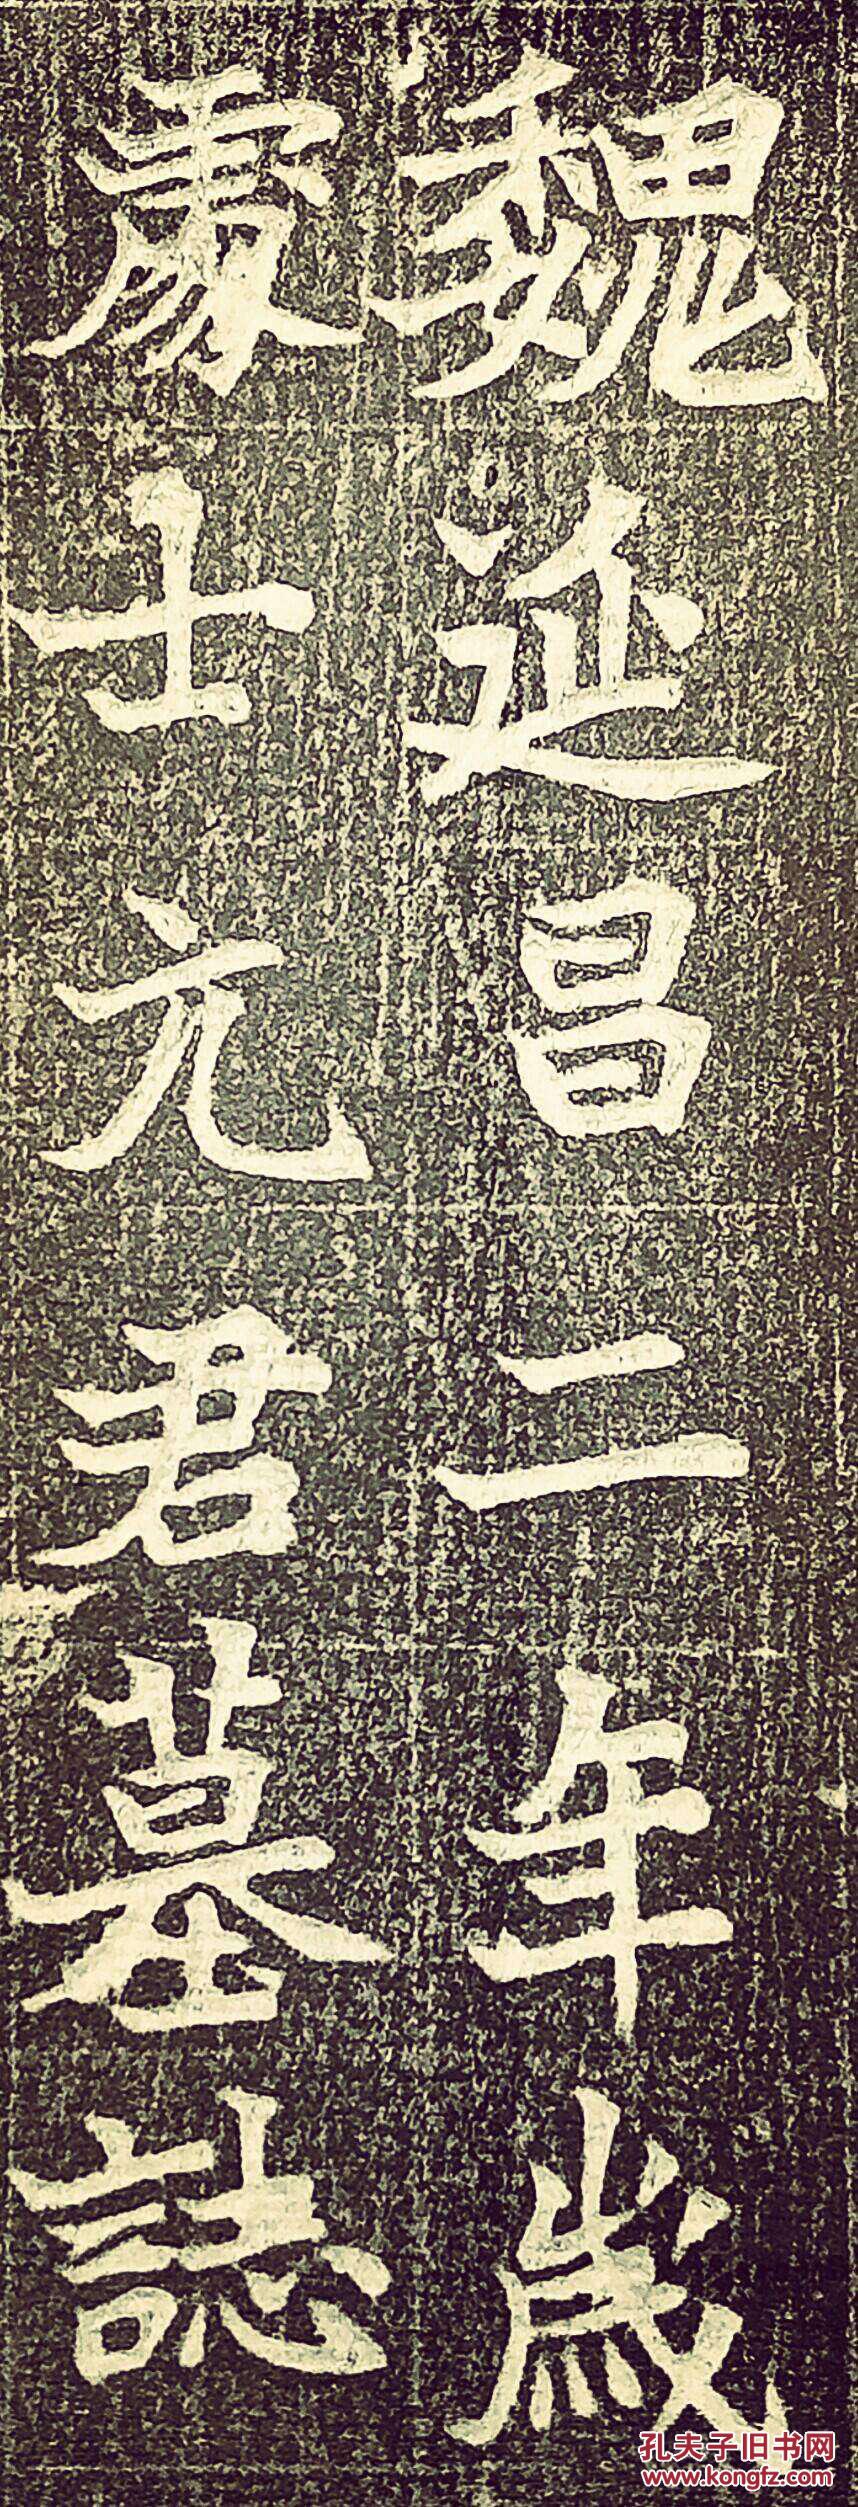 魏延昌二年歲
處士元君墓誌
孔夫子旧书网
www.kongfz.com